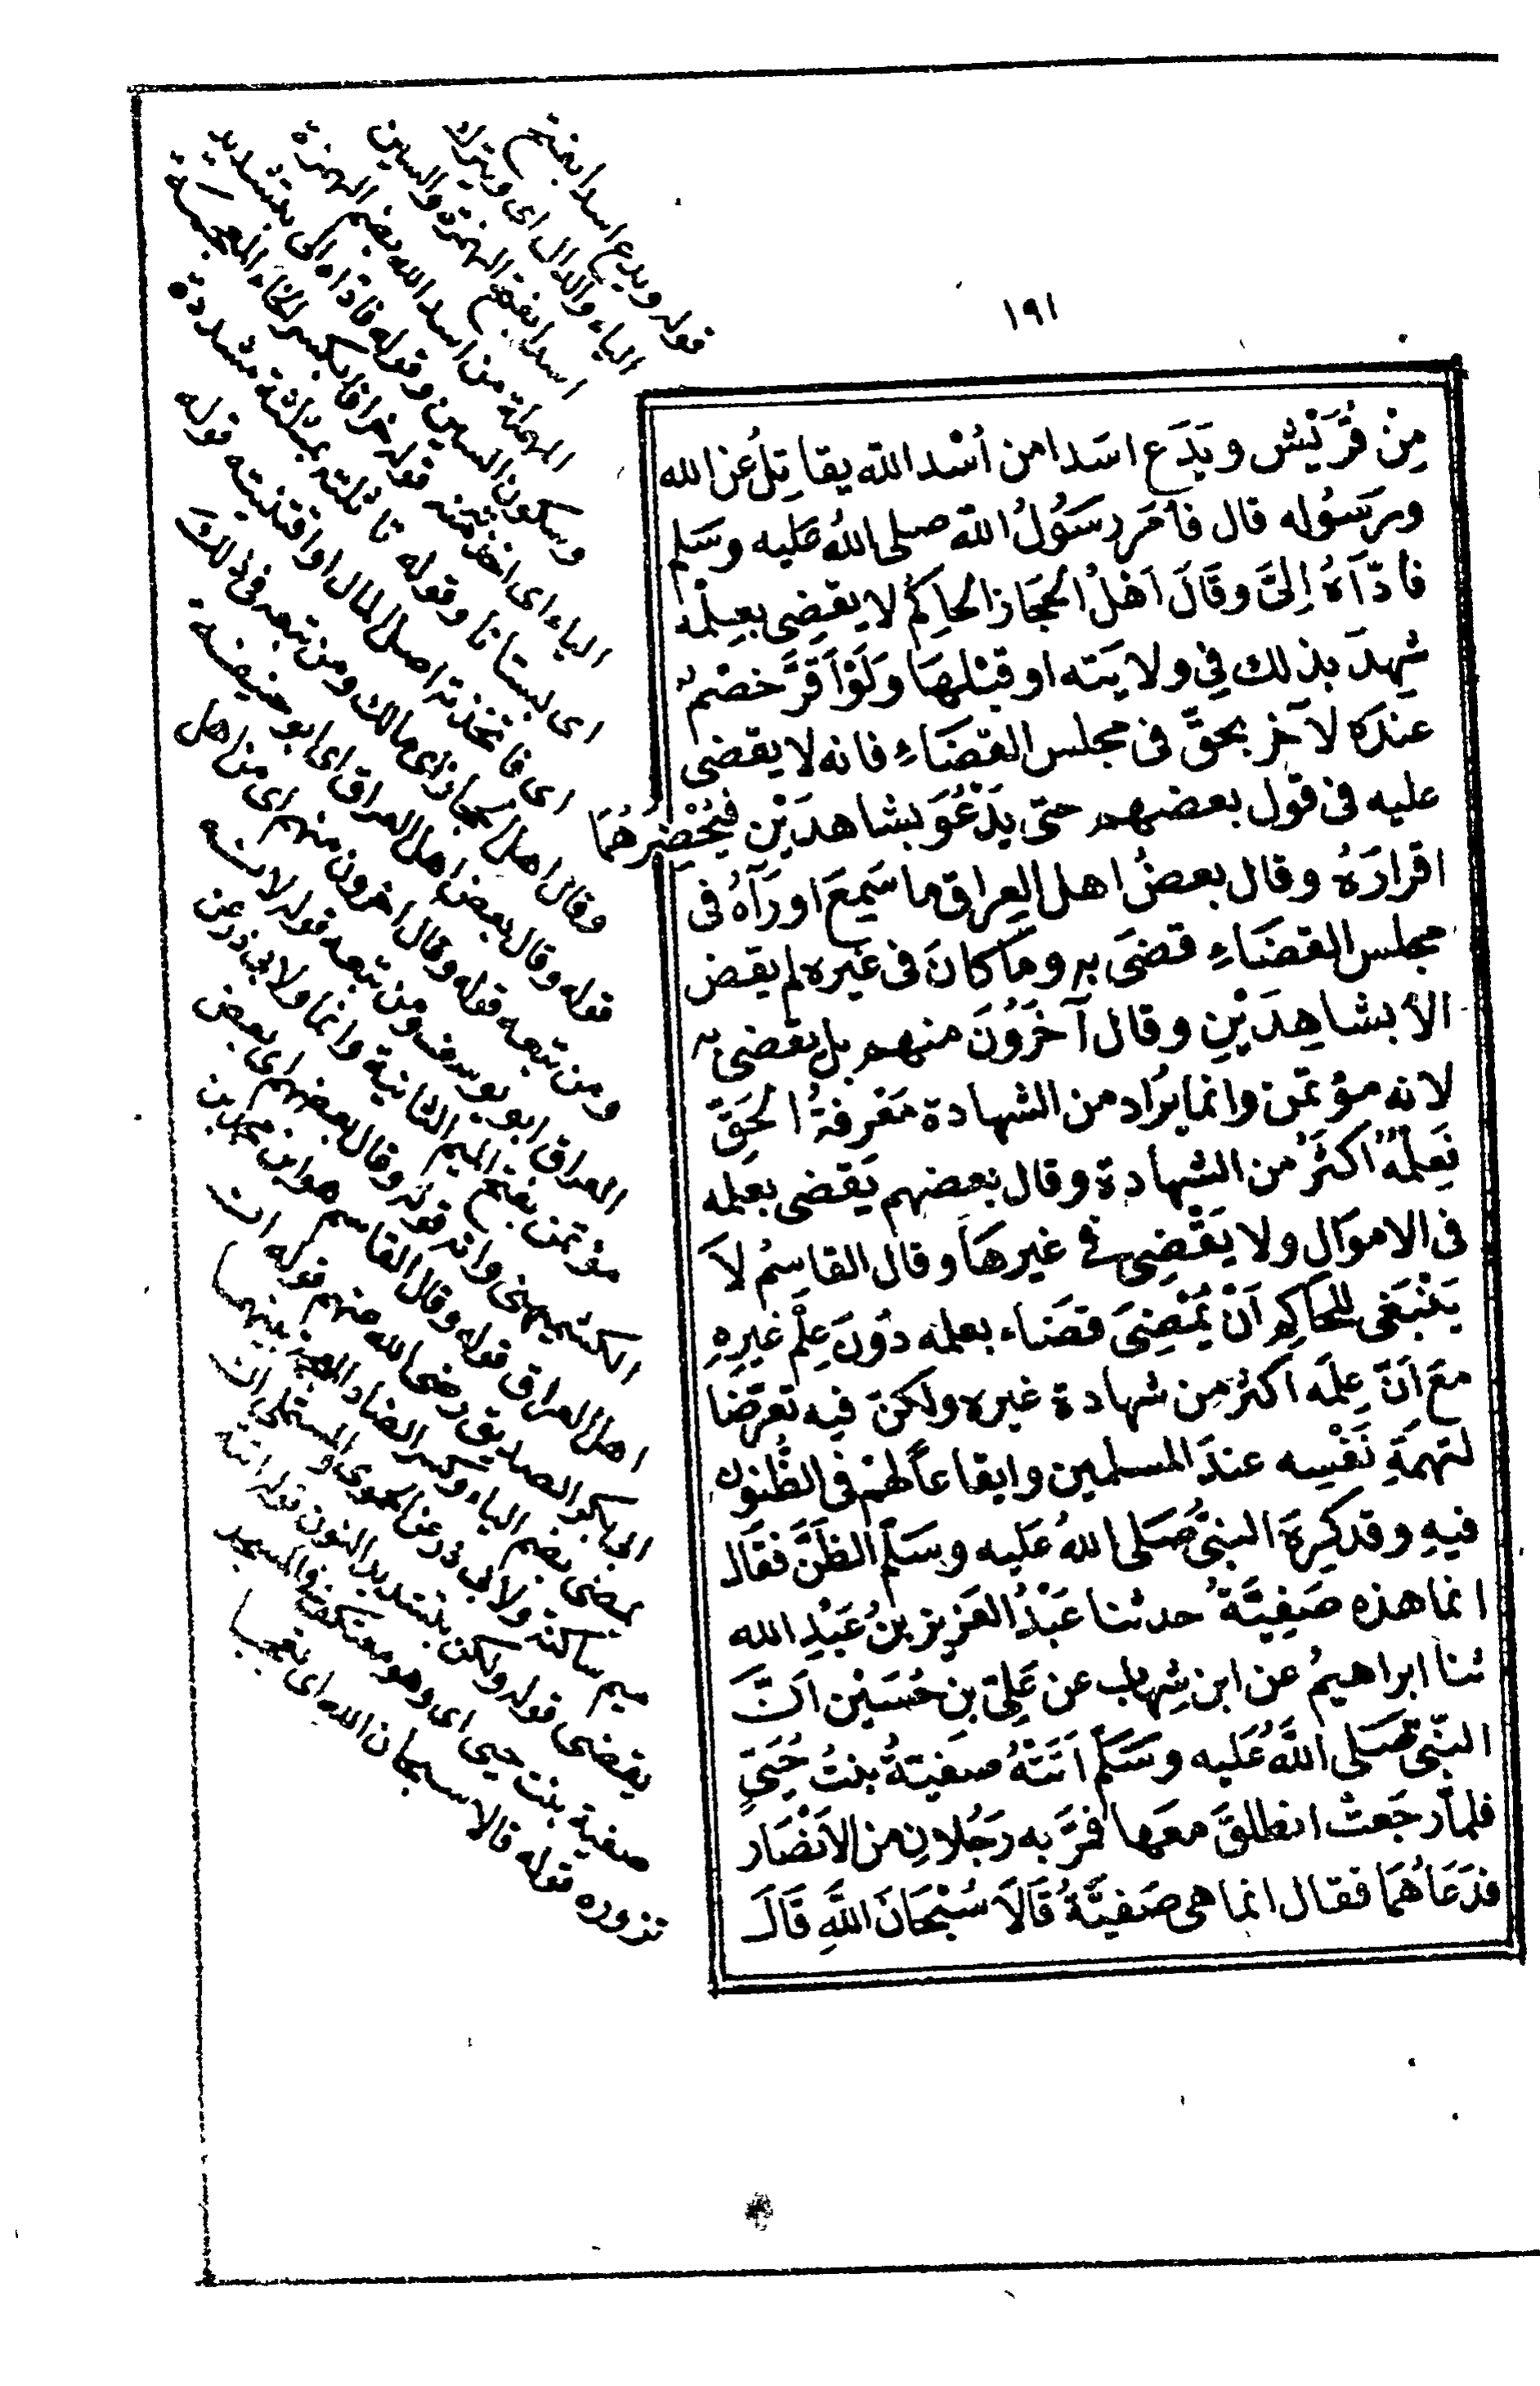 ١٩١
مِنْ قُرَيْش ويَدَع اسَدا من اُسْد الله يقاتِلُ عن الله
ورَسُوله قال فأمَر رسَوُلُ الله صلى اللهُ عَليه وسَلم
فادّاهُ اِلىَّ وقَالَ اَهْلُ الحجَاز الحاكِمُ لا يقضِى بعِلْمه
شهِدَ بذلك فى ولايَته او قبْلهَا ولَوْ اَقَرَّ خصْم
عنْدَه لآخر بحقَّ فى مجلس القضَاءِ فانه لا يقضى
عليه فى قول بعضهم حتى يَدْعُوَ بشاهدَيْن فيُحْضِرُهُمَا
اقرارَهُ وقال بعضُ اهل العراق ما سَمِعَ او رَآهُ فى
مجلس القضَاءِ قضَى به وما كانَ فى غيره لم يقض
الا بشاهِدَيْنِ وقال آخَرُونَ منهم بل يقضى به
لانه مؤتمَن وانما يُرَاد من الشهادة مَعْرِفَةُ الحَقَّ
فَعِلْمُهُ اكثَرُ من الشهادة وقال بعضهم يَقضى بعلمه
فى الاموَالِ ولا يَقْضِى فى غيرهَا وقال القاسِمُ لاَ
يَنْبَغى للحاكِم اَنْ يُمْضِىَ قضَاء بعلمه دوُنَ عِلْم غيرِهِ
معَ اَنَّ عِلمَه اكثرُ من شهادة غيره ولكنّ فيه تعرّضًا
لتهمَةِ نَفْسِه عندَ المسلمين وايقاعاً لهُمْ فى الظُنوُن
فيهِ وقد كرِهَ النبىُّ صَلى اللهُ عَليه وسَلم الظنَّ فقَال
انما هذه صَفِيَّةُ حدثنا عَبْدُ العَزِيز بنُ عَبْدِ الله
ثنا ابراهيمُ عن ابن شِهاب عن عَلِىّ بنِ حُسَيْن اَنَّ
النّبىَّ صَلى اللَّهُ عَليه وسَلَّمَ اَتَتْهُ صفيَّةُ بنتُ حُيَىٍّ
فلمّا رجَعتْ انطلقَ معَها فمرَّ به رَجُلانِ من الاَنْصَار
فدَعَاهُمَا فقال انما هى صَفيَّةُ قَالاَ سُبْحَانَ اللَّهِ قَالَ
قوله ويدع اسدا بفتح
الياء والدال اى ويترك
اسدا بفتح الهمزة والسين
المهملة من اسد الله بضم الهمزة
وسكون السين وقوله فاداه الى بتشديد
الياء اى اخذ ثمنه قوله خرافا بكسر الخاء المعجمة
اى بستانا وقوله تاثلته بمثلثة مشددة
اى فاتخذته اصل المال او اقتنيته قوله
وقال اهل الحجاز اى مالك ومن تبعه فى ذلك
قوله وقال بعض اهل العراق اى ابو حنيفة
ومن تبعه قوله وقال اخرون منهم اى من اهل
العراق ابو يوسف ومن تبعه قوله لانه
مؤتمن بفتح الميم الثانية وانما ولابى ذر عن
الكشميهنى وانه قوله وقال بعضهم اى بعض
اهل العراق قوله وقال القاسم هو ابن محمد بن
ابى بكر الصديق رضى الله عنهم قوله ان
يمضى بضم الياء وكسر الضاد المعجمة بينهما
ميم ساكنة ولابى ذر عن الحموى والمستملى ان
يقضى قوله ولكن بتشديد النون قوله اتته
صفية بنت حيى اى وهو معتكف فى المسجد
تزوره قوله قالا سبحان الله اى تعجبا